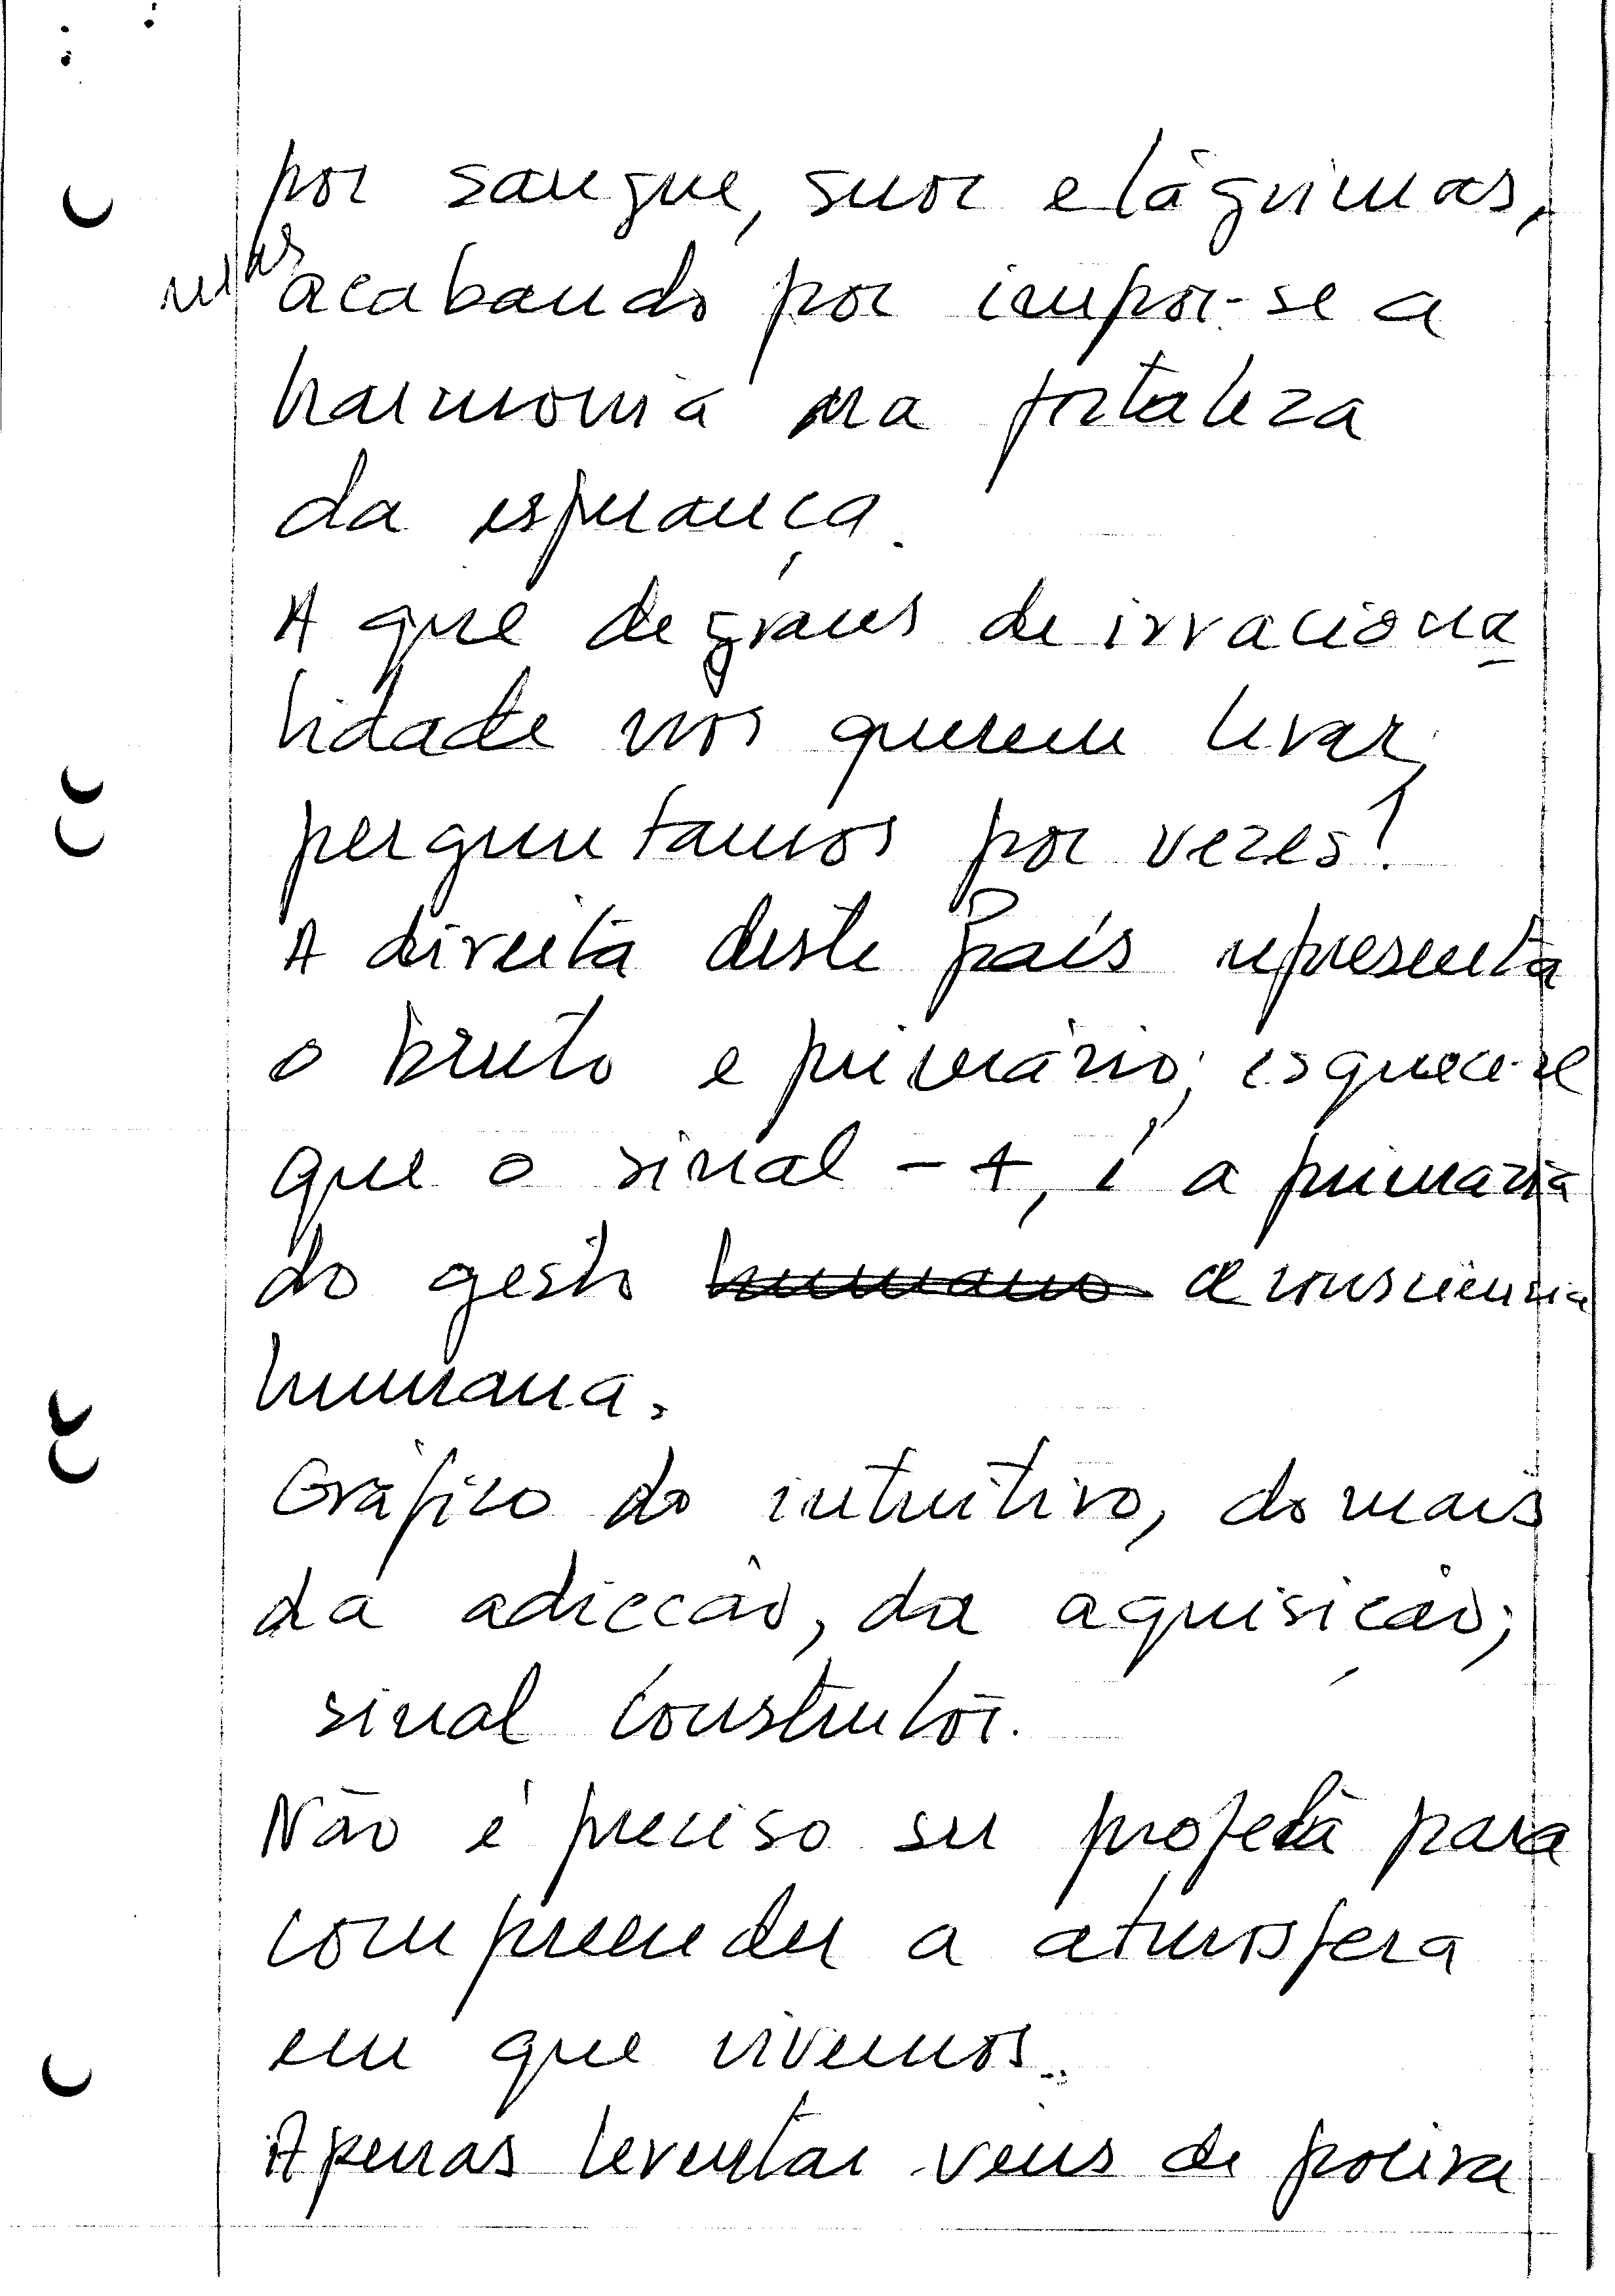 por sangue, suor e láguimas,
mas acabando por impor-se a
harmonia na fortaleza
da esperança.
A que degraus de irraciona
lidade nos querem levar,
perguntamos por vezes!
A direita deste País representa
o bruto e primário; esquece-se
que o sinal - +, é a primazia
do gesto humano e consciência
humana.
Gráfico do intuitivo, do mais
da adicção, da aquisição;
sinal construtor.
Não é preciso ser profeta para
compreender a atmosfera
em que vivemos.
Apenas leventar véus de poeira